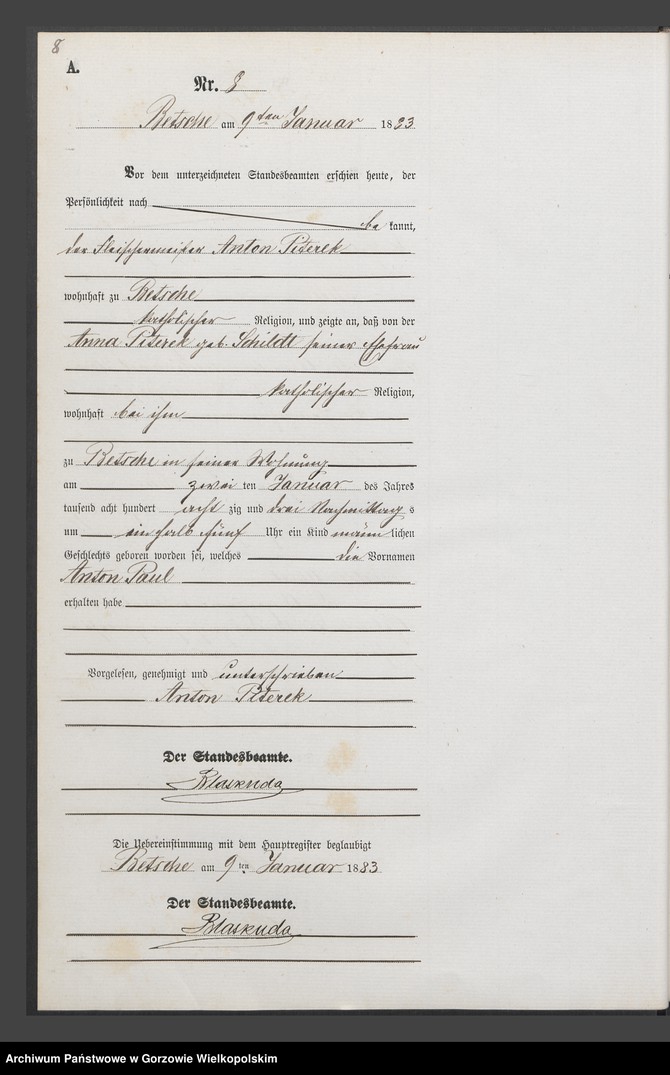 8
A.
Nr. 8
Betsche am 9ten Januar 1883
Vor dem unterzeichneten Standesbeamten erschien heute, der
Persönlichkeit nach
be kannt,
der Fleischermeister Anton Piterek
wohnhaft zu Betsche
katholischer Religion, und zeigte an, daß von der
Anna Piterek geb. Schildt seiner Ehefrau
katholischer Religion,
wohnhaft bei ihm
zu Betsche in seiner Wohnung
am zwei ten Januar des Jahres
tausend acht hundert acht zig und drei Nachmittag s
um ein halb fünf Uhr ein Kind männ lichen
Geschlechts geboren worden sei, welches die Vornamen
Anton Paul
erhalten habe
Vorgelesen, genehmigt und unterschrieben
Anton Piterek
Der Standesbeamte.
Blaskuda
Die Uebereinstimmung mit dem Hauptregister beglaubigt
Betsche am 9ten Januar 1883
Der Standesbeamte.
Blaskuda
Archiwum Państwowe w Gorzowie Wielkopolskim